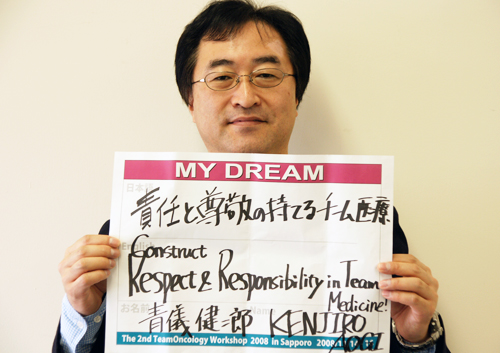 MY DREAM
日本語
責任と尊敬の持てるチーム医療
English
Construct
Respect & Responsibility in Team
Medicine!
お名前 Name
青儀健二郎 KENJIRO
AOGI
The 2nd TeamOncology Workshop 2008 in Sapporo